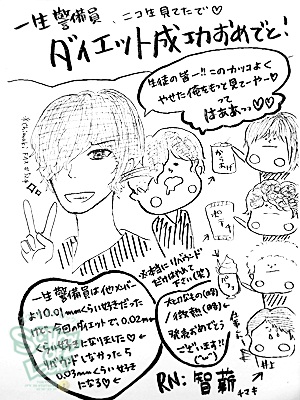 一生警備員、ニコ生見てたで♡
ダイエット成功おめでと!
生徒の皆ー!!このカッコよく
やせた俺をもっと見てーやー♡
って
はああっっ♡♡
からあげ
ポテチ
※本当にリバウンド
だけはやめて
下さい(笑)
一生警備員は他メンバー
より0.01mmくらい好きだった
けど、今回のダイエットで、0.02mm
くらい好きになりました♡
リバウンドしなかったら
0.03mmくらい好き
になる♡
大人なもの(略)
/微熱(略)
発売おめでとう
ございます!!
仕事しろ
井上
RN:智薪
チマキ